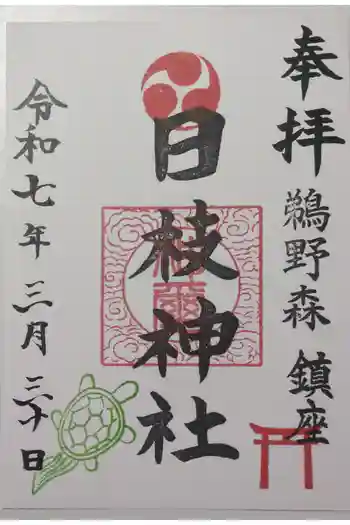 奉拝
鵜野森 鎮座
日枝神社
令和七年三月三十日